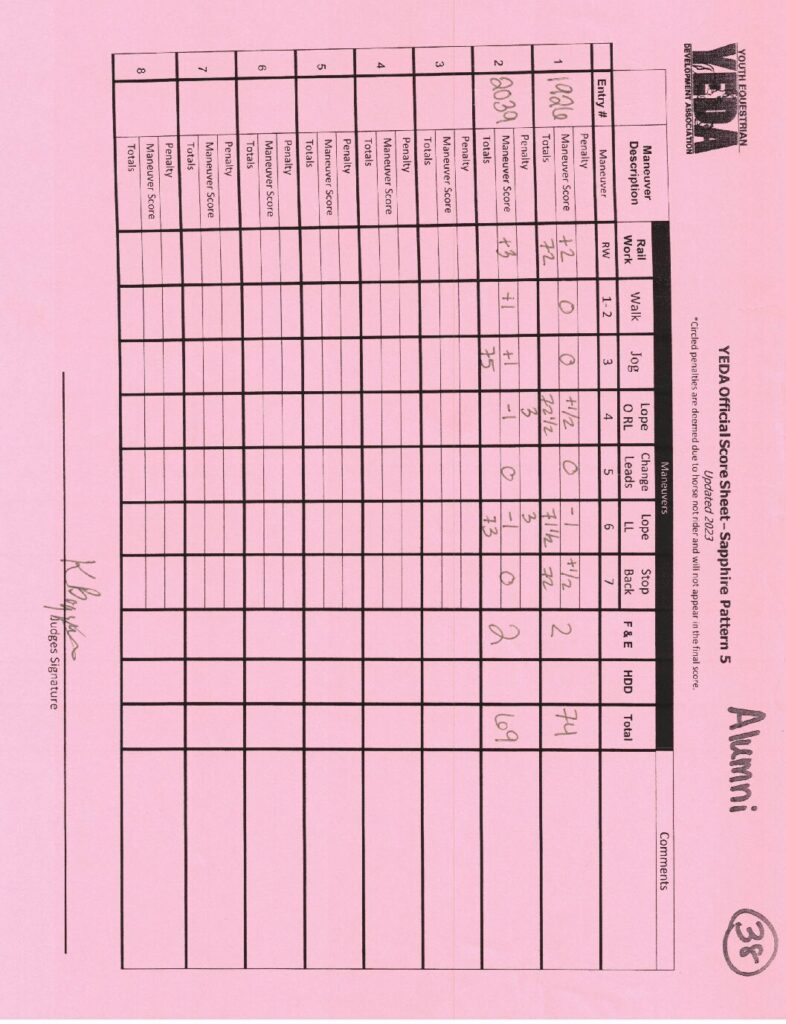 YOUTH EQUESTRIAN
YEDA
DEVELOPMENT ASSOCIATION
Alumni
38
YEDA Official Score Sheet – Sapphire Pattern 5
Updated 2023
*Circled penalties are deemed due to horse not rider and will not appear in the final score.
Maneuvers
Maneuver Description Rail Work Walk Jog Lope O RL Change Leads Lope LL Stop Back F & E HDD Total Comments
Entry # Maneuver RW 1-2 3 4 5 6 7
1 1926 Penalty
Maneuver Score +2 0 0 +1/2 0 -1 +1/2 2 74
Totals 72 72 1/2 71 1/2 72
2 2039 Penalty 3 3
Maneuver Score +3 +1 +1 -1 0 -1 0 2 69
Totals 75 73
3 Penalty
Maneuver Score
Totals
4 Penalty
Maneuver Score
Totals
5 Penalty
Maneuver Score
Totals
6 Penalty
Maneuver Score
Totals
7 Penalty
Maneuver Score
Totals
8 Penalty
Maneuver Score
Totals
Judges Signature